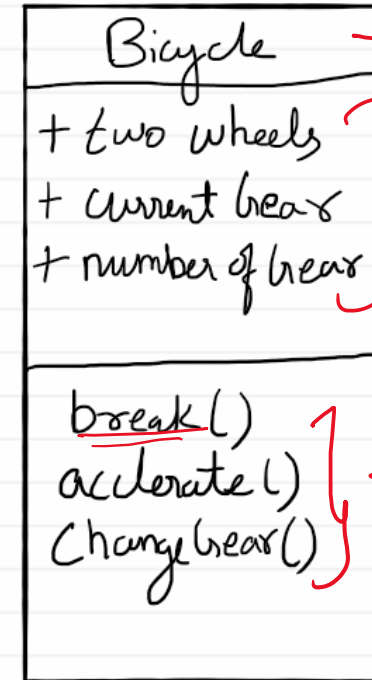 Bicycle
+ two wheels
+ current Gear
+ number of Gear
break()
acclerate()
Change Gear()